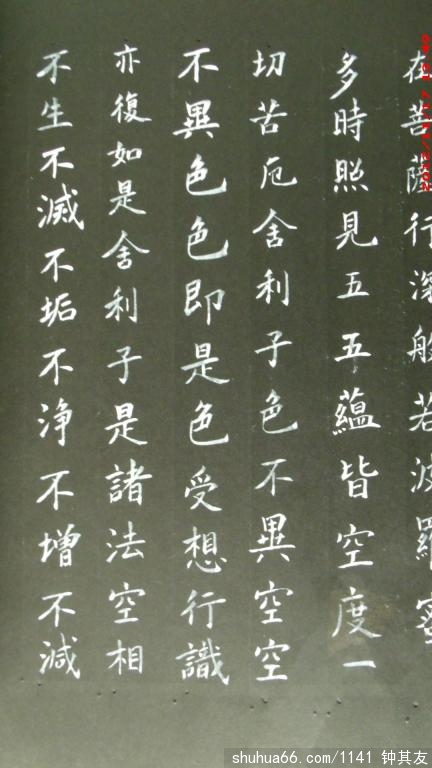 在菩薩行深般若波羅蜜
多時照見五五蘊皆空度一
切苦厄舍利子色不異空空
不異色色即是色受想行識
亦復如是舍利子是諸法空相
不生不滅不垢不净不增不減
shuhua66.com/1141 钟其友